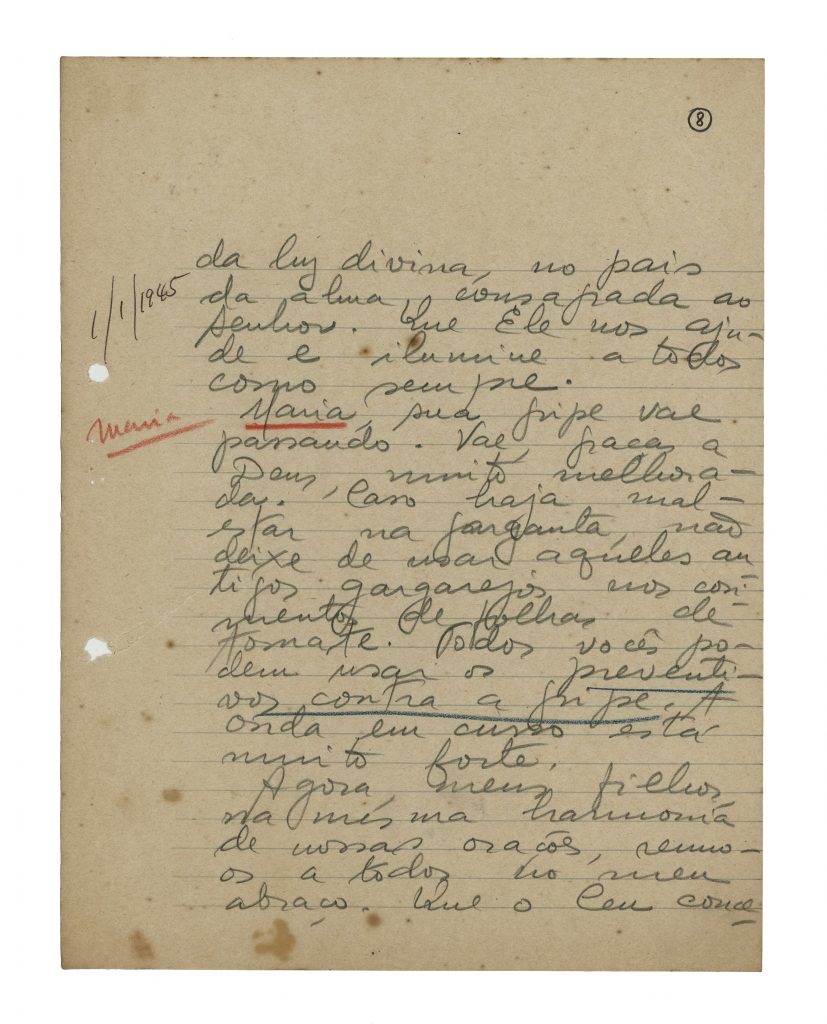 8
da luz divina, no pais
da alma, consagrada ao
Senhor. Que Êle nos aju-
de e ilumine a todos,
como sempre.
1/1/1945
Maria, sua gripe vae
Maria
passando. Vae, graças a
Deus, muito melhora-
da. Caso haja mal-
estar na garganta, não
deixe de usar aquêles an
tigos gargarejos nos cosi-
mentos de folhas de
tomate. Todos vocês po-
dem usar os preventi-
vos contra a gripe. A
onda em curso está
muito forte.
Agora, meus filhos,
na mesma harmonia
de nossas orações, reuno-
os a todos no meu
abraço. Que o Ceu conce-